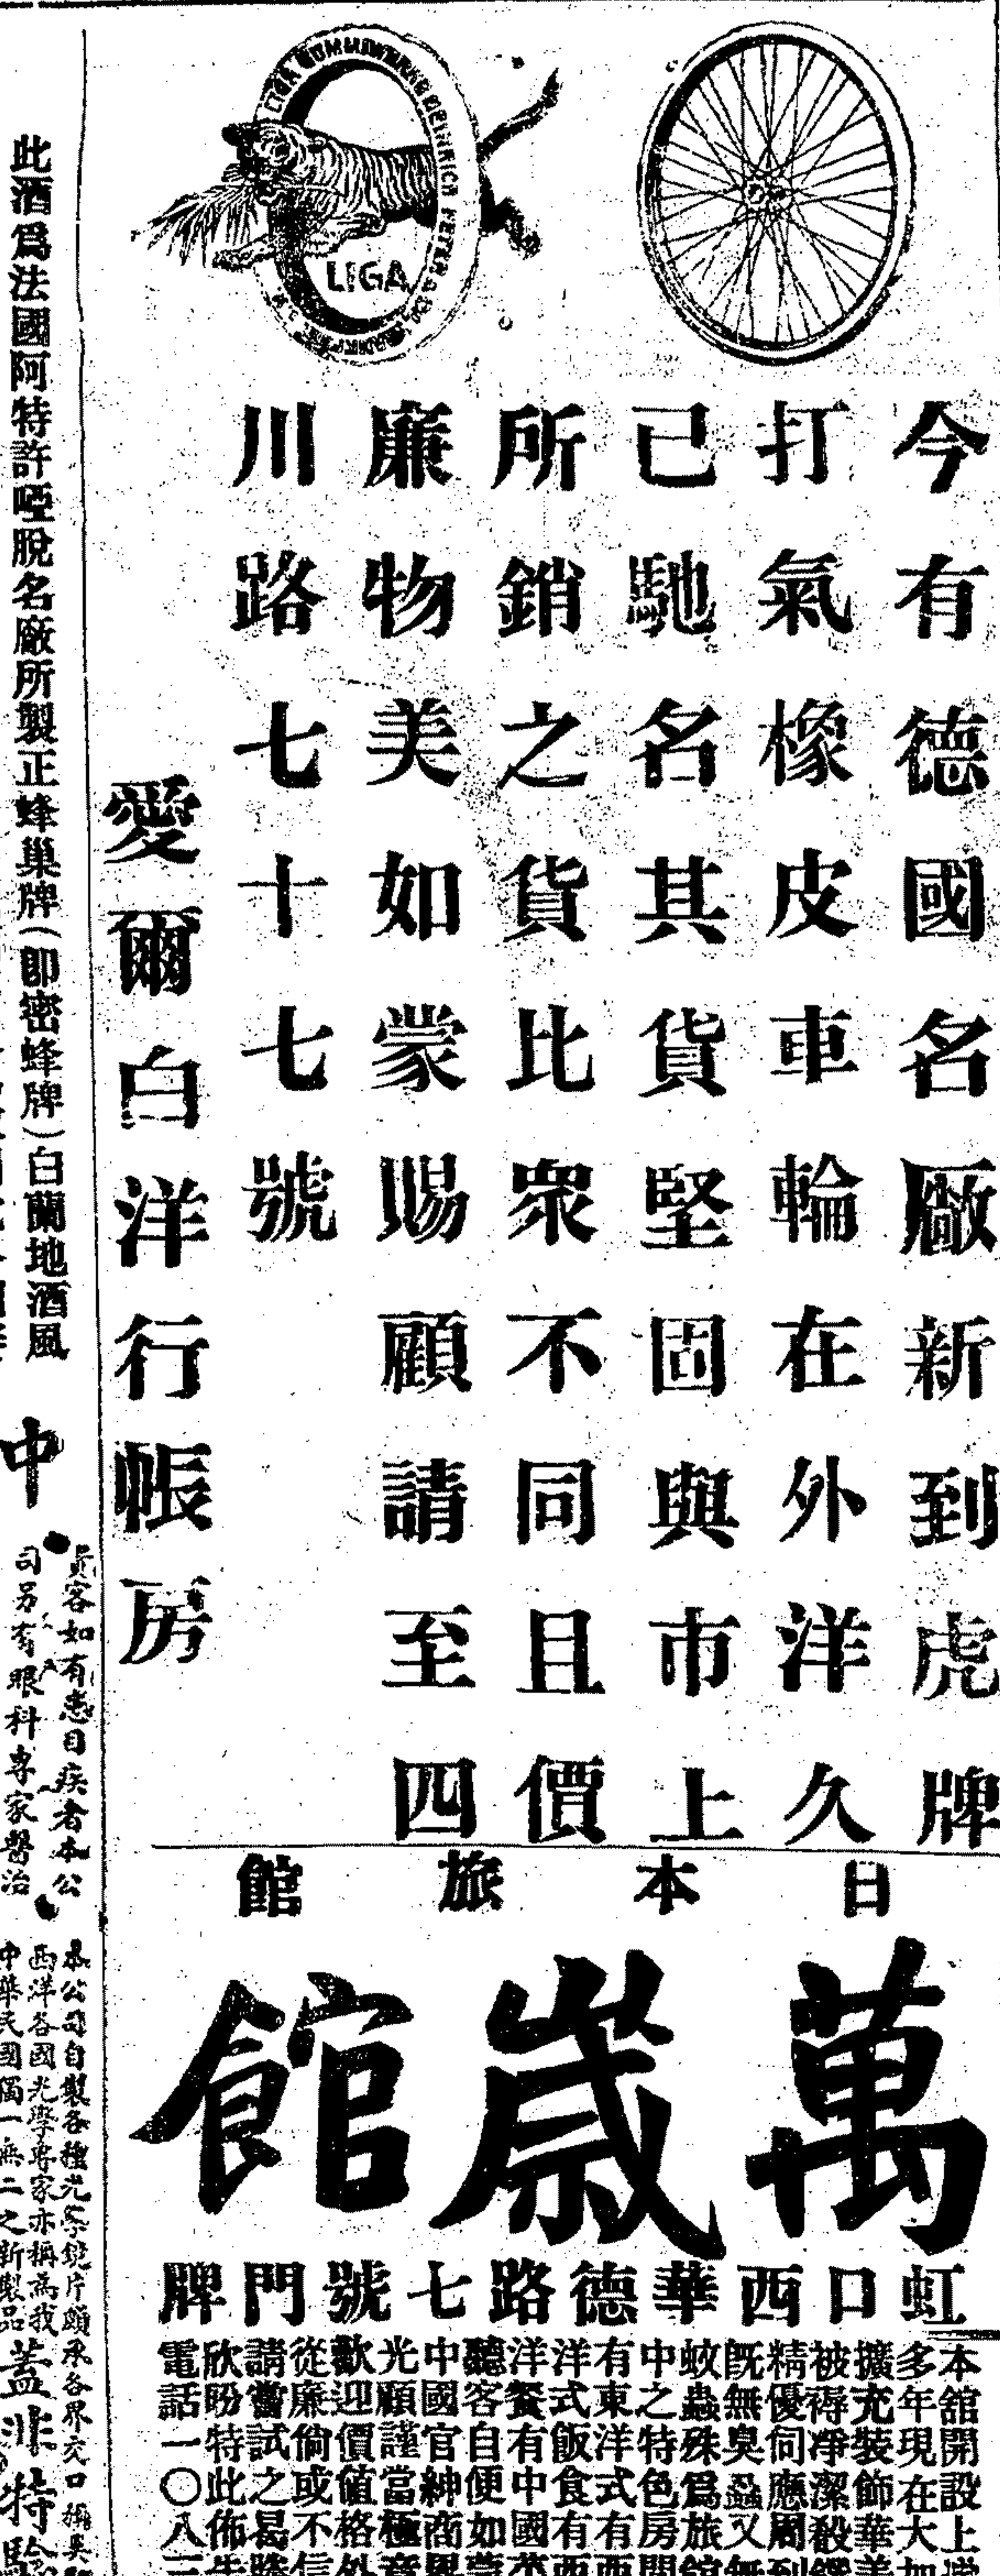 LIGA GUMMIWERKE HEINRICH PETER & Co.
LIGA
今有德國名廠新到虎牌
打氣橡皮車輪在外洋久
已馳名其貨堅固與市上
所銷之貨比眾不同且價
廉物美如蒙賜顧請至四
川路七十七號
愛爾白洋行帳房
日本旅館
萬歲館
虹口西華德路七號門牌
本館開設上
多年現在大加
擴充裝飾華美
被褥凈潔殺
精優伺應周到
既無臭蟲又無
蚊蟲殊爲旅館
中之特色房間
有東洋式有西
洋式飯食有西
洋餐有中國菜
聽客自便如蒙
中國官紳商界
光顧謹當極意
歡迎價值格外
從廉倘或不信
請嘗試之曷勝
欣盼特此佈告
電話一〇八三
此酒爲法國阿特許啞脫名廠所製正蜂巢牌(即密蜂牌)白蘭地酒風
中
貴客如有患目疾者本公
司另有眼科專家醫治
本公司自製各種光學鏡片頗承各界交口稱
西洋各國光學專家亦稱爲我
中華民國獨一無二之新製品